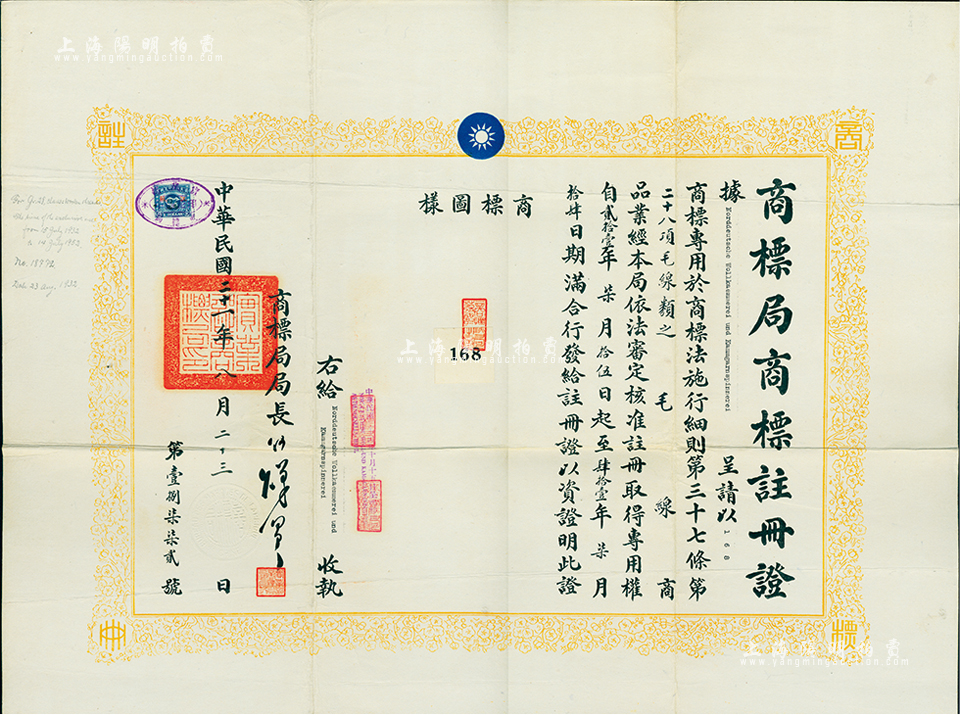 商標局商標註冊證
據 Norddeutsche Wollkaemmerei und Kammgarnspinnerei 呈請以 168
商標專用於商標法施行細則第三十七條第
二十八項毛線類之 毛線 商
品業經本局依法審定核准註冊取得專用權
自貳拾壹年柒月拾伍日起至肆拾壹年柒月
拾肆日期滿合行發給註冊證以資證明此證
商標圖樣
168
右給 Norddeutsche Wollkaemmerei und Kammgarnspinnerei 收執
商標局局長
中華民國二十一年八月二十三日
第壹捌柒柒貳號
商
標
註
冊
from 15 July 1932
to 14 July 1952
No. 18772
Date 23 Aug. 1932
上海陽明拍賣
www.yangmingauction.com
上海陽明拍賣
www.yangmingauction.com
上海陽明拍賣
www.yangmingauction.com